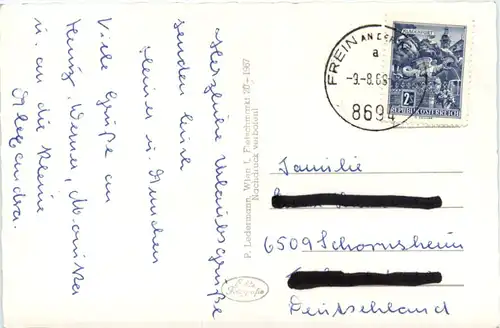 Herzliche Urlaubsgrüße
senden Euch
Heiner u. Hannchen
Viele Grüße an
Heinz Werner, Monika
u. an die kleine
Alexandra.
P. Ledermann, Wien I, Fleischmarkt 20 - 1967
Nachdruck verboten!
FREIN AN DER
a
-9.-8.68-
8694
KLAGENFURT
2S
REPUBLIK ÖSTERREICH
Familie
6509 Schornsheim
Deutschland